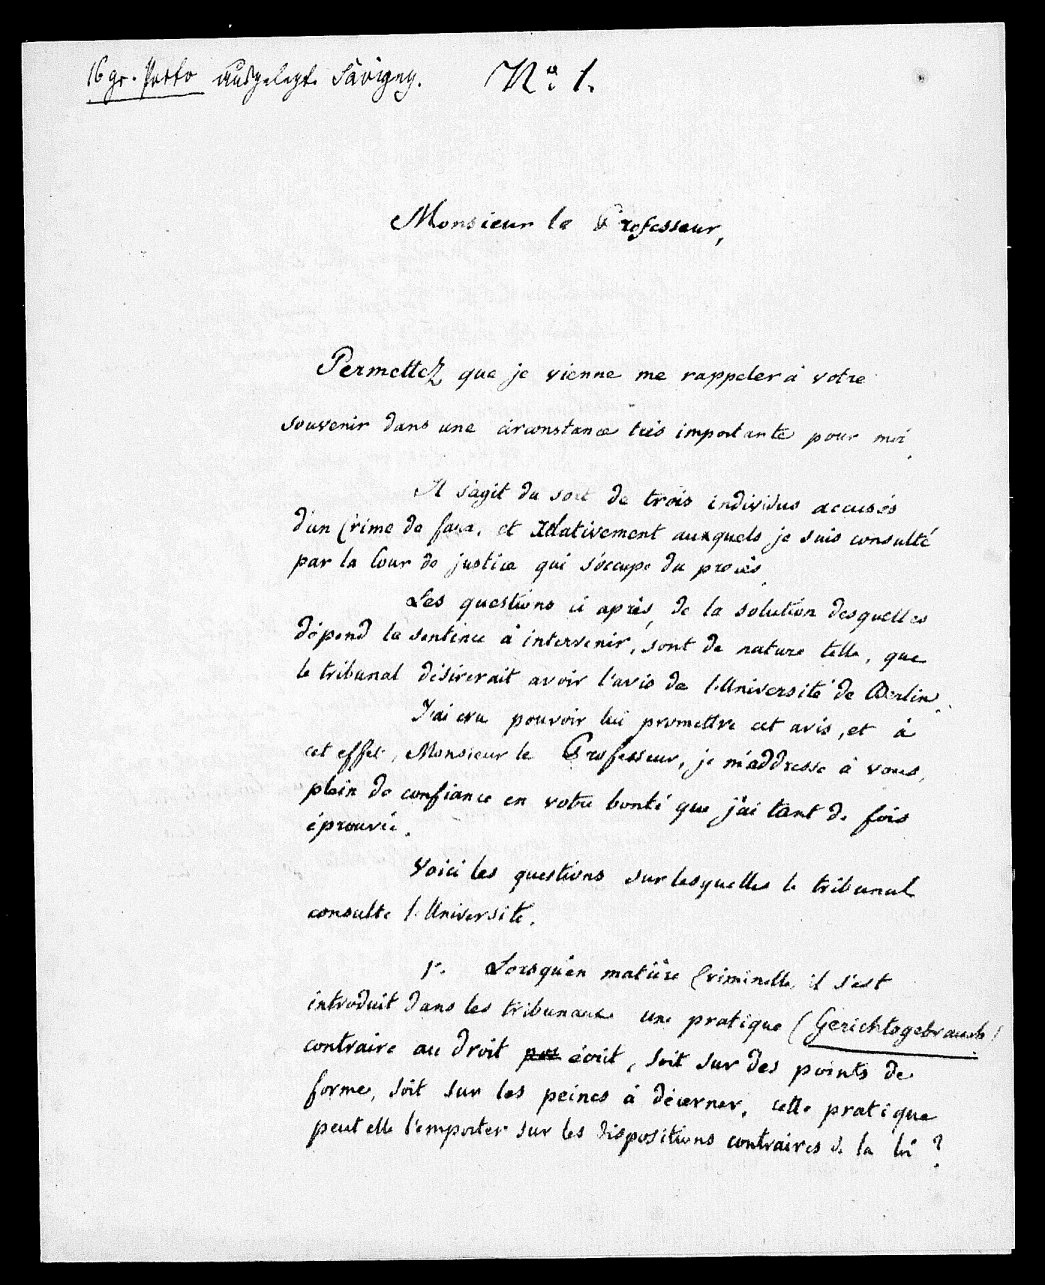 16 gr. Porto ausgelegt Savigny. No. 1.
Monsieur le Professeur,
Permettez que je vienne me rappeler à votre
souvenir dans une circonstance très importante pour moi.
Il s'agit du sort de trois individus accusés
d'un Crime de faux, et relativement auxquels je suis consulté
par la Cour de justice qui s'occupe du procès.
Les questions ci après, de la solution desquelles
dépend la sentence à intervenir, sont de nature telle, que
le tribunal désirerait avoir l'avis de l'Université de Berlin.
J'ai cru pouvoir lui promettre cet avis, et à
cet effet, Monsieur le Professeur, je m'addresse à vous,
plein de confiance en votre bonté que j'ai tant de fois
éprouvée.
Voici les questions sur lesquelles le tribunal
consulte l'Université.
1°. Lorsqu'en matière Criminelle, il s'est
introduit dans les tribunaux une pratique (Gerichtsgebrauch)
contraire au droit écrit, soit sur des points de
forme, soit sur les peines à décerner, cette pratique
peut elle l'emporter sur les dispositions contraires de la loi ?